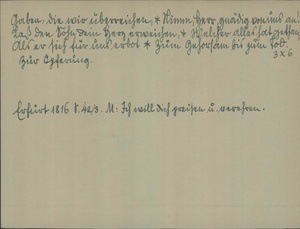 Gaben, die wir überreichen, * Nimm, Herr, gnädig von uns an
Laß den Sohn dein Herz erweichen, * Welcher alles hat gethan
Als er sich für uns erbot * Zum Gehorsam bis zum Tod.
3 x 6
Zur Opferung.
Erfurt 1816 S. 42/3. M: Ich will dich preisen u. verehren.